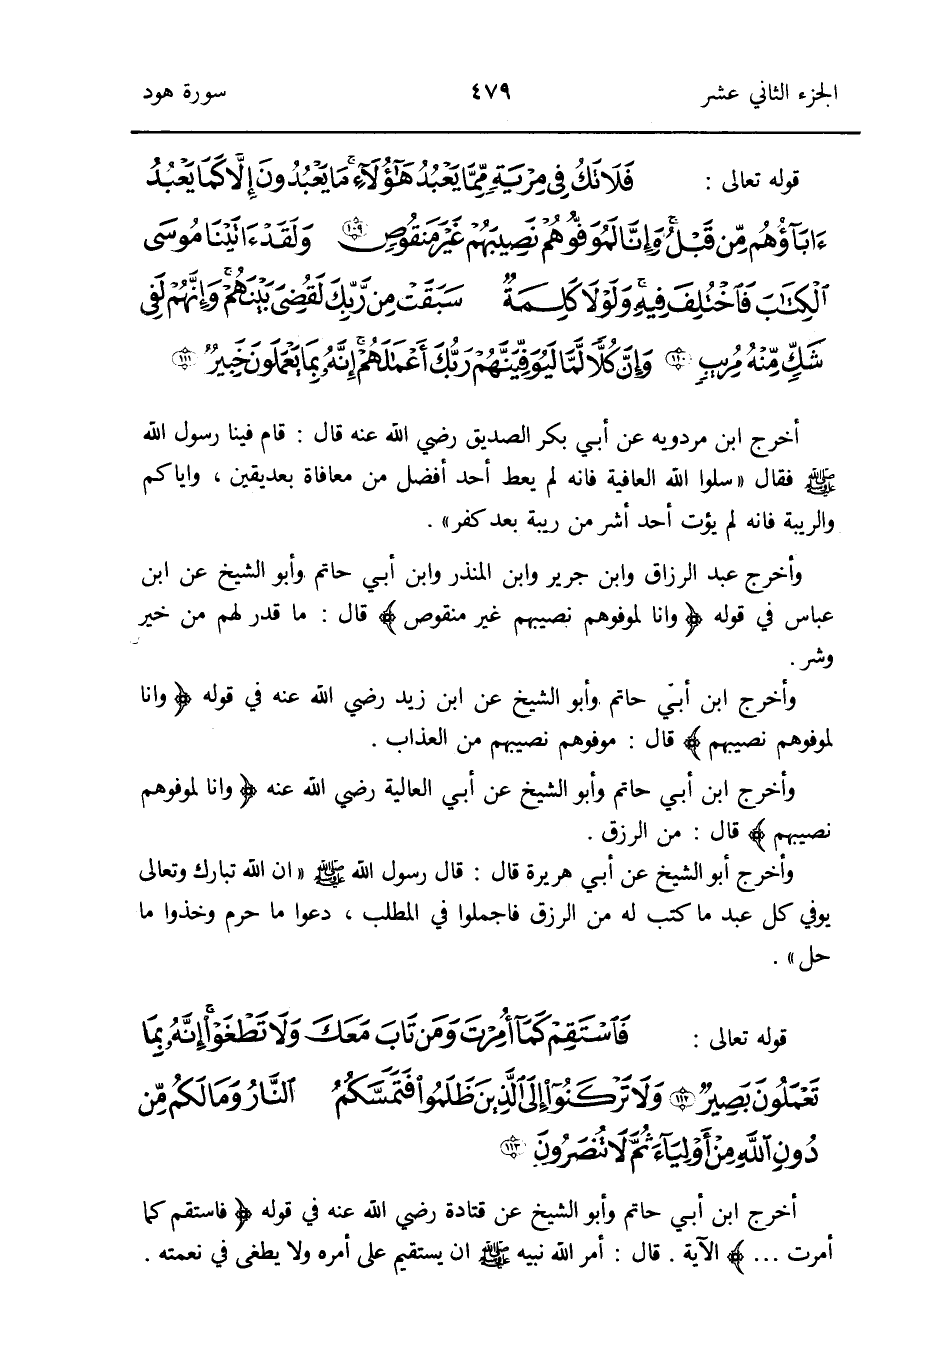 الجزء الثاني عشر ٤٧٩ سورة هود
قوله تعالى : فَلَا تَكُ فِي مِرْيَةٍ مِّمَّا يَعْبُدُ هَٰٓؤُلَآءِ ۚ مَا يَعْبُدُونَ إِلَّا كَمَا يَعْبُدُ
ءَابَآؤُهُم مِّن قَبْلُ ۚ وَإِنَّا لَمُوَفُّوهُمْ نَصِيبَهُمْ غَيْرَ مَنقُوصٍ ١٠٩ وَلَقَدْ ءَاتَيْنَا مُوسَى
ٱلْكِتَٰبَ فَٱخْتُلِفَ فِيهِ ۚ وَلَوْلَا كَلِمَةٌ سَبَقَتْ مِن رَّبِّكَ لَقُضِيَ بَيْنَهُمْ ۚ وَإِنَّهُمْ لَفِى
شَكٍّ مِّنْهُ مُرِيبٍ ١١٠ وَإِنَّ كُلًّا لَّمَّا لَيُوَفِّيَنَّهُمْ رَبُّكَ أَعْمَٰلَهُمْ ۚ إِنَّهُۥ بِمَا يَعْمَلُونَ خَبِيرٌ ١١١
أخرج ابن مردويه عن أبي بكر الصديق رضي الله عنه قال : قام فينا رسول الله
ﷺ فقال «سلوا الله العافية فانه لم يعط أحد أفضل من معافاة بعديقين ، واياكم
والريبة فانه لم يؤت أحد أشر من ريبة بعد كفر» .
وأخرج عبد الرزاق وابن جرير وابن المنذر وابن أبي حاتم وأبو الشيخ عن ابن
عباس في قوله ﴿ وانا لموفوهم نصيبهم غير منقوص ﴾ قال : ما قدر لهم من خير
وشر .
وأخرج ابن أبي حاتم وأبو الشيخ عن ابن زيد رضي الله عنه في قوله ﴿ وانا
لموفوهم نصيبهم ﴾ قال : موفوهم نصيبهم من العذاب .
وأخرج ابن أبي حاتم وأبو الشيخ عن أبي العالية رضي الله عنه ﴿ وانا لموفوهم
نصيبهم ﴾ قال : من الرزق .
وأخرج أبو الشيخ عن أبي هريرة قال : قال رسول الله ﷺ «ان الله تبارك وتعالى
يوفي كل عبد ما كتب له من الرزق فاجملوا في المطلب ، دعوا ما حرم وخذوا ما
حل» .
قوله تعالى : فَٱسْتَقِمْ كَمَآ أُمِرْتَ وَمَن تَابَ مَعَكَ وَلَا تَطْغَوْا۟ ۚ إِنَّهُۥ بِمَا
تَعْمَلُونَ بَصِيرٌ ١١٢ وَلَا تَرْكَنُوٓا۟ إِلَى ٱلَّذِينَ ظَلَمُوا۟ فَتَمَسَّكُمُ ٱلنَّارُ وَمَا لَكُم مِّن
دُونِ ٱللَّهِ مِنْ أَوْلِيَآءَ ثُمَّ لَا تُنصَرُونَ ١١٣
أخرج ابن أبي حاتم وأبو الشيخ عن قتادة رضي الله عنه في قوله ﴿ فاستقم كما
أمرت ... ﴾ الآية . قال : أمر الله نبيه ﷺ ان يستقيم على أمره ولا يطغى في نعمته .